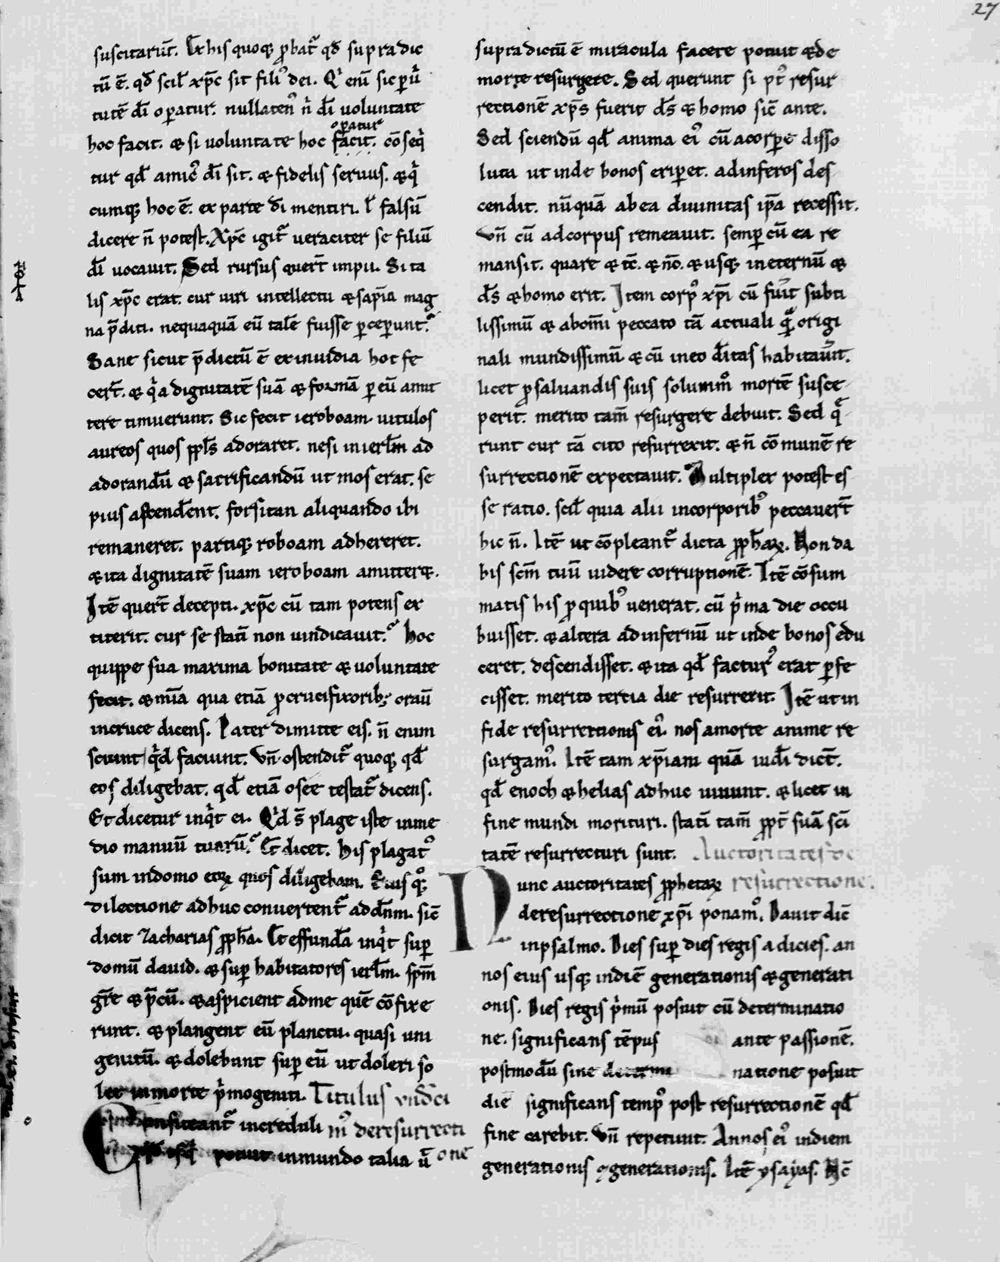 27
suscitarūt. Et his quoq; ꝓbat᷑ qđ supradic
tū ē. qđ scil᷑ xp̄c sit fili᷒ dei. Qͥ eni̅ sic ꝑ uͥ
tutē dī oꝑatur. nullaten᷒ nͥ dī uoluntate
hoc facit. & si uoluntate hoc facit. cōseqͥ
oꝑatur
tur qđ amic᷒ dī sit. & fidelis seruus. & qͥ
cumq; hoc ē. ex parte dī mentiri. ł falsū
dicere n̄ potest. Xp̄c igit᷑ ueraciter se filiū
dī uocauit. Sed rursus quer̄t impii. Si ta
lis xp̄c erat. cur uiri intellectu & sapīa mag
na p̄diti. nequaquā eū talē fuisse ꝑceperunt.
Sane sicut p̄dictū ē ex inuidia hoc fe
cer̄t. & qͥa dignitatē suā & formā ꝑ eū amit
tere timuerunt. Sic fecit ieroboam. uitulos
aureos quos ppl̄s adoraret. nesi in ierl̄m ad
adorandū & sacrificandū ut mos erat. se
pius ascend̄ent. forsitan aliquando ibi
remaneret. partiq; roboam adhereret.
& ita dignitatē suam ieroboam amitter&.
Itē quer̄t decepti. xp̄c cū tam potens ex
titerit. cur se stati̅ non uindicauit. Hoc
quippe sua maxima bonitate & uoluntate
fecit. & n̄ia qua etiā ꝓ crucifixorib; orau̅
in cruce dicens. Pater dimitte eis. n̄ enim
sciunt qͥd faciunt. Vn̄ ostendit᷑ quoq; qđ
eos diligebat. qđ etiā osee testat᷑ dicens.
Et dicetur inqͥt ei. Qͥd s̄ plage iste in me
dio manuū tuarū. Et dicet. His plagat᷒
sum in domo eoꝝ quos diligebam. Eius qͦq;
dilectione adhuc conuertent᷑ ad dn̄m. sic̄
dicit zacharias ꝓph̄a. Et effundā inqͥt suꝑ
domū dauid. & suꝑ habitatores ierl̄m. spm̄
gr̄e & p̄cū. & aspicient ad me quē cōfixe
runt. & plangent eū planctu. quasi uni
genitū. & dolebunt suꝑ eū ut doleri so
let in morte pͥmogeniti. Titulus vnđci
Confiteant᷑ increduli m̊ de resurrecti
potuit in mundo talia ū one
supra dictū ē miracula facere potuit & de
morte resurgere. Sed querunt si p᷒t resur
rectionē xp̄s fuerit d̄s & homo sic̄ ante.
Sed sciendū qđ anima ei᷒ cū a corꝑe disso
luta ut inde bonos eriꝑet. ad inferos des
cendit. nūquā ab ea diuinitas ip̄a recessit.
Vn̄ cū ad corpus remeauit. semꝑ cū ea re
mansit. quare & tc̄. & nc̄. & usq; in eternū &
d̄s & homo erit. Item corp᷒ xp̄i cū fuit subti
lissimū & ab om̄i peccato tā actuali qͣ̄ origi
nali mundissimū & cū in eo d̄itas habitau̅it.
licet ꝓ saluandis suis solumm̊ mortē susce
perit. merito tam̄ resurgere debuit. Sed q̄
runt cur tā cito resurrexit. & n̄ cōmunē re
surrectionē expectauit. Multiplex potest es
se ratio. scil᷑ quia alii in corporib᷒ peccauer̄t
hic n̄. Itē ut cōpleant᷑ dicta ꝓph̄aꝝ. Non da
bis scm̄ tuū uidere corruptionē. Itē cōsum
matis his ꝓ quib᷒ uenerat. cū pͥma die occu
buisset. & altera ad infernū ut inde bonos edu
ceret. descendisset. & ita qđ factur᷒ erat ꝑfe
cisset. merito tertia die resurrexit. Itē ut in
fide resurrectionis ei᷒. nos a morte anime re
surgam᷒. Itē tam xp̄iani quā iudi̅ dic̄t.
qđ enoch & helias adhuc uiuunt. & licet in
fine mundi morituri. stati̅ tam̄ ꝓpt᷑ suā sci̅
tatē resurrecturi sunt. Auctoritates de
Nunc auctoritates ꝓphetaꝝ resurrectione.
de resurrectione xp̄i ponam᷒. Dauit dic̄
in psalmo. Dies suꝑ dies regis adicies. an
nos eius usq; in diē generationis & generati
onis. Dies regis pͥmū posuit cū determinatio
ne. significans tēpus ante passionē.
postmodū sine determi natione posuit
die significans temp᷒ post resurrectionē qđ
fine carebit. Vn̄ repetiuit. Annos ei᷒ in diem
generationis & generationis. Itē ysayas. Hc̄